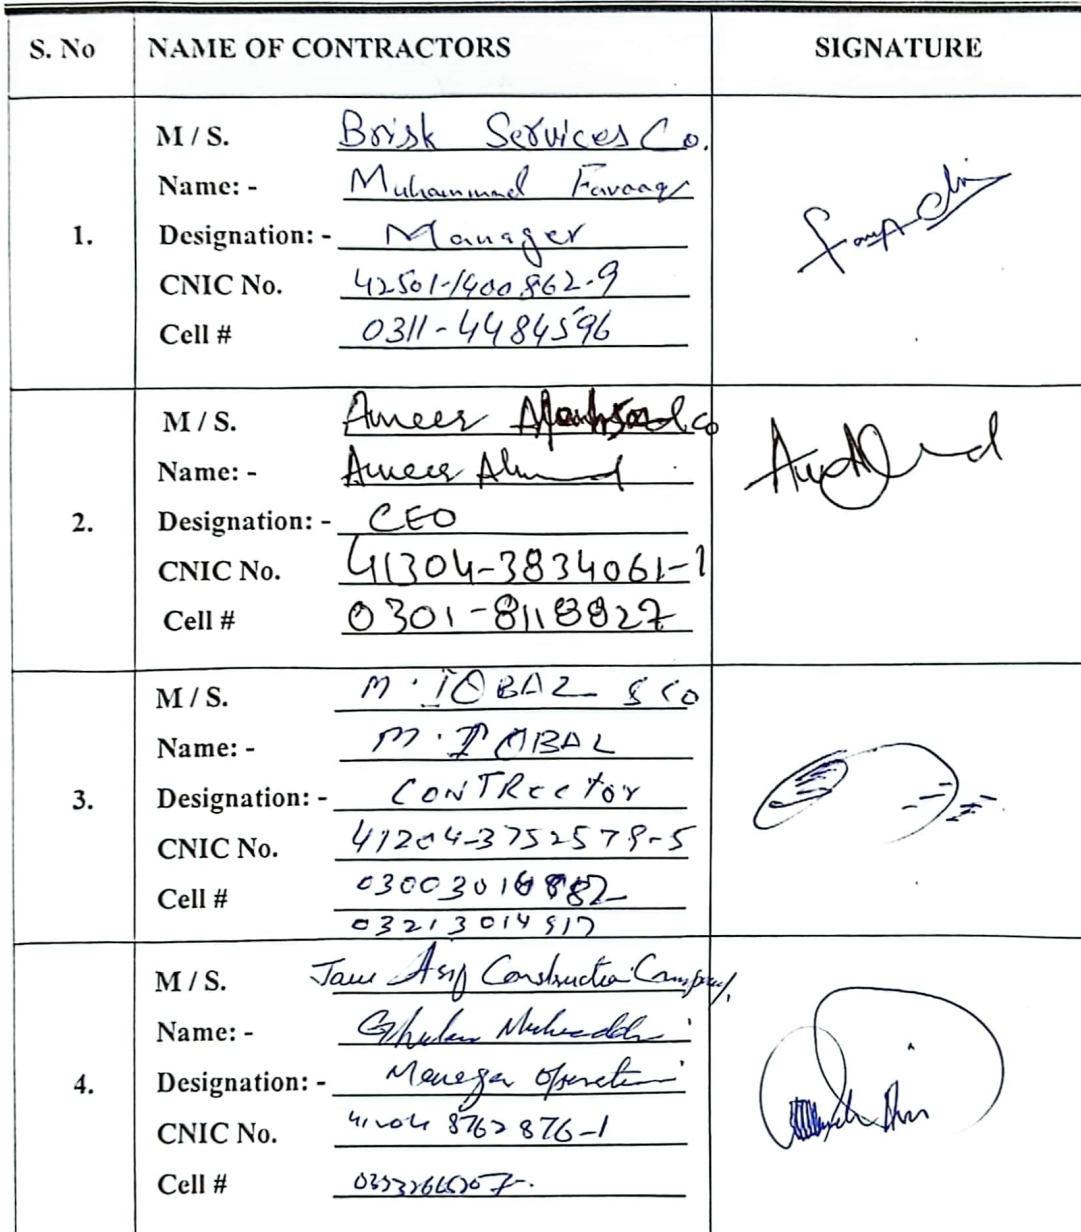 S. No NAME OF CONTRACTORS SIGNATURE
1.
M / S. Brisk Services Co.
Name: - Muhammad Farooq
Designation: - Manager
CNIC No. 42501-1400862-9
Cell # 0311-4484596
2.
M / S. Ameer & Co
Name: - Ameer Ahmed
Designation: - CEO
CNIC No. 41304-3834061-1
Cell # 0301-8118827
3.
M / S. M. IQBAL & CO
Name: - M. IQBAL
Designation: - CONTRector
CNIC No. 41204-3752579-5
Cell #
03213014917
4.
M / S. Asif Construction Company
Name: - Ghulam
Designation: - Manager Operation
CNIC No. 8762876-1
Cell #